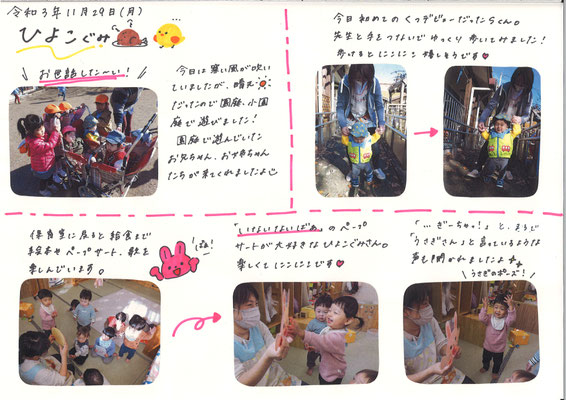 令和3年11月29日(月)
ひよこぐみ
お世話した〜い!
今日は寒い風が吹い
ていましたが、晴天
だったので園庭、小園
庭で遊びました!
園庭で遊んでいた
お兄ちゃん、お姉ちゃん
たちが来てくれましたよ
今日初めてのくつデビューだったらくん。
先生と手をつないでゆっくり歩いてみました!
歩けるとにこにこ嬉しそうです♥
保育室に戻ると給食まで
絵本やペープサート、歌を
楽しんでいます。
ばぁ!
「いないいないばぁ」のペープ
サートが大好きなひよこぐみさん。
楽しくてにこにこです♥
「…ぎーちゃっ!」と、まるで
「うさぎさん」と言っているような
声も聞かれましたよ
うさぎのポーズ!